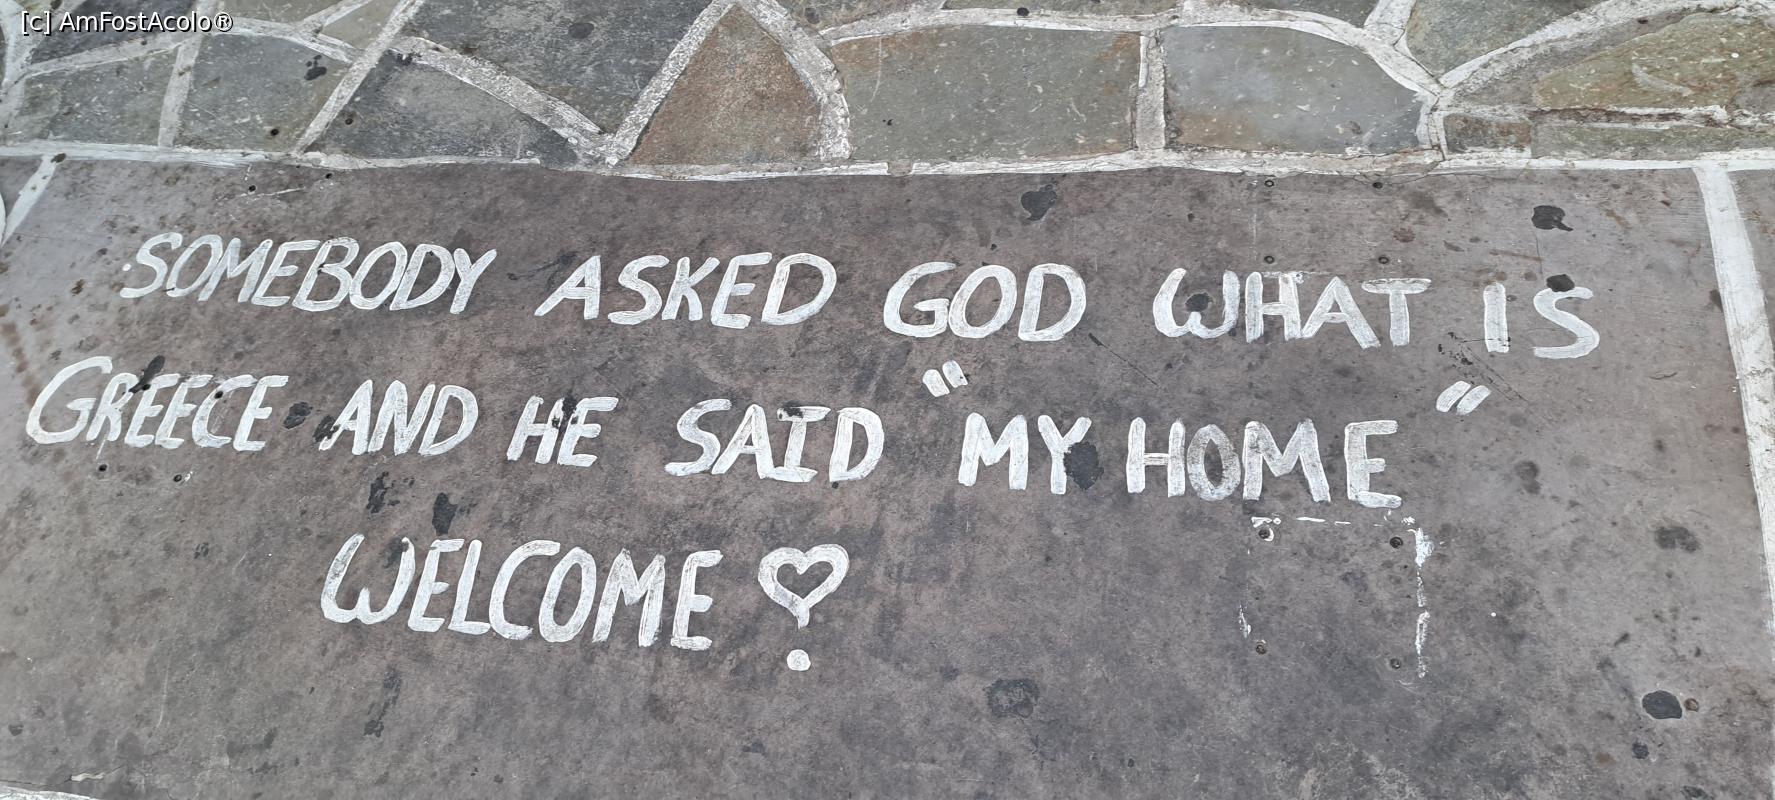 [c] AmFostAcolo®
SOMEBODY ASKED GOD WHAT IS
GREECE AND HE SAID "MY HOME"
WELCOME